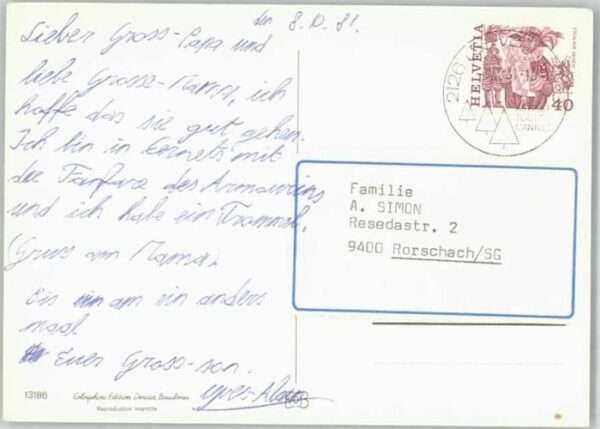 den 8.10.81.
Lieber Gross-Papa und
liebe Grosse-Mama, ich
hoffe das sie gut gehen.
Ich bin in Vernets mit
der Fanfare des Armourins
und ich habe ein Trommel.
Gruss am Mama,
Bis am ein anders
maal
Euer Gross-son.
Yves-Alain
HELVETIA
40
2126
Familie
A. SIMON
Resedastr. 2
9400 Rorschach/SG
13186
Reproduction interdite